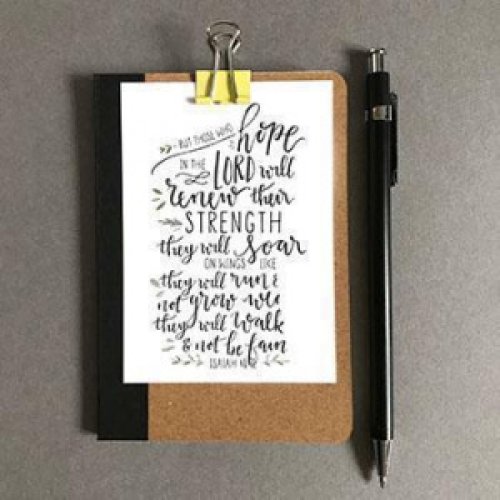 BUT THOSE WHO
hope
IN THE LORD will
renew their
STRENGTH
they will soar
ON WINGS LIKE
they will run &
not grow we
they will walk
& not be fain
ISAIAH